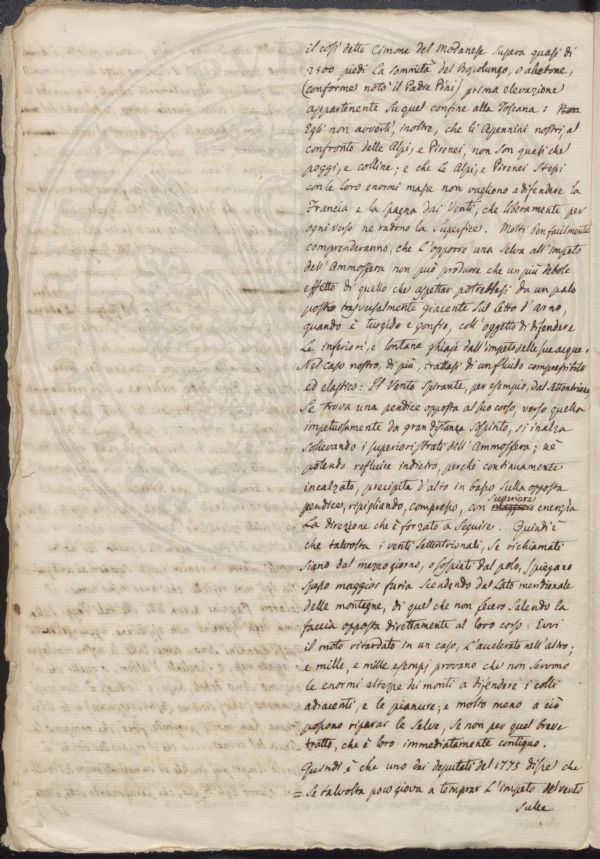 il così detto Cimone del Modanese supera quasi di
2500 piedi la sommità del Bosolungo, o abetone,
(conforme notò il Padre Pini) prima elevazione
appartenente su quel confine alla Toscana:
Egli non avvertì, inoltre, che li Apennini nostri al
confronto delle Alpi, e Pirenei, non son quasi che
poggi, e colline; e che le Alpi, e Pirenei stessi
con le loro enormi masse non vagliono a difendere la
Francia e la Spagna dai Venti, che liberamente per
ogni verso ne radono la superfice. Molti ben facilmente
comprenderanno, che l'opporre una Selva all'impeto
dell'Ammosfera non può produrre che un più debole
effetto di quello che aspettar potrebbesi da un palo
posto trasversalmente giacente sul letto d'Arno,
quando è turgido e gonfio, coll'oggetto di difendere
le inferiori, e lontane ghiaje dall'impeto delle sue acque.
Nel caso nostro, di più, trattasi di un fluido compressibile
ed elastico: Il Vento spirante, per esempio, dal Settentrione
se trova una pendice opposta al suo corso, verso quella
impetuosamente da gran distanza sospinto, si inalza
sollevando i superiori strati dell'Ammosfera; nè
potendo refluire indietro, perchè continuamente
incalzato, precipita d'alto in basso sulla opposta
pendice, ripigliando, compresso, con superiore energia
la direzione che è forzato a seguire. Quindi è
che talvolta i venti settentrionali, se richiamati
siano dal mezzogiorno, o sospinti dal polo, spiegano
spesso maggior furia scendendo dal lato meridionale
delle montagne, di quel che non fecero salendo la
faccia opposta direttamente al loro corso: Evvi
il moto ritardato in un caso, l'accelerato nell'altro;
e mille, e mille esempj provano che non servono
le enormi altezze dei monti a difendere i colli
adiacenti, e le pianure; e molto meno a ciò
possono riparar le Selve, se non per quel breve
tratto, che è loro immediatamente contiguo.
Quindi è che uno dei deputati del 1775 disse che
= se talvolta poco giova a temprar l'impeto del vento
sulle